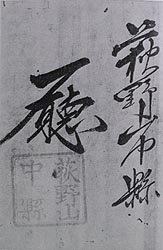 荻野山中縣
廳
荻野山
中縣